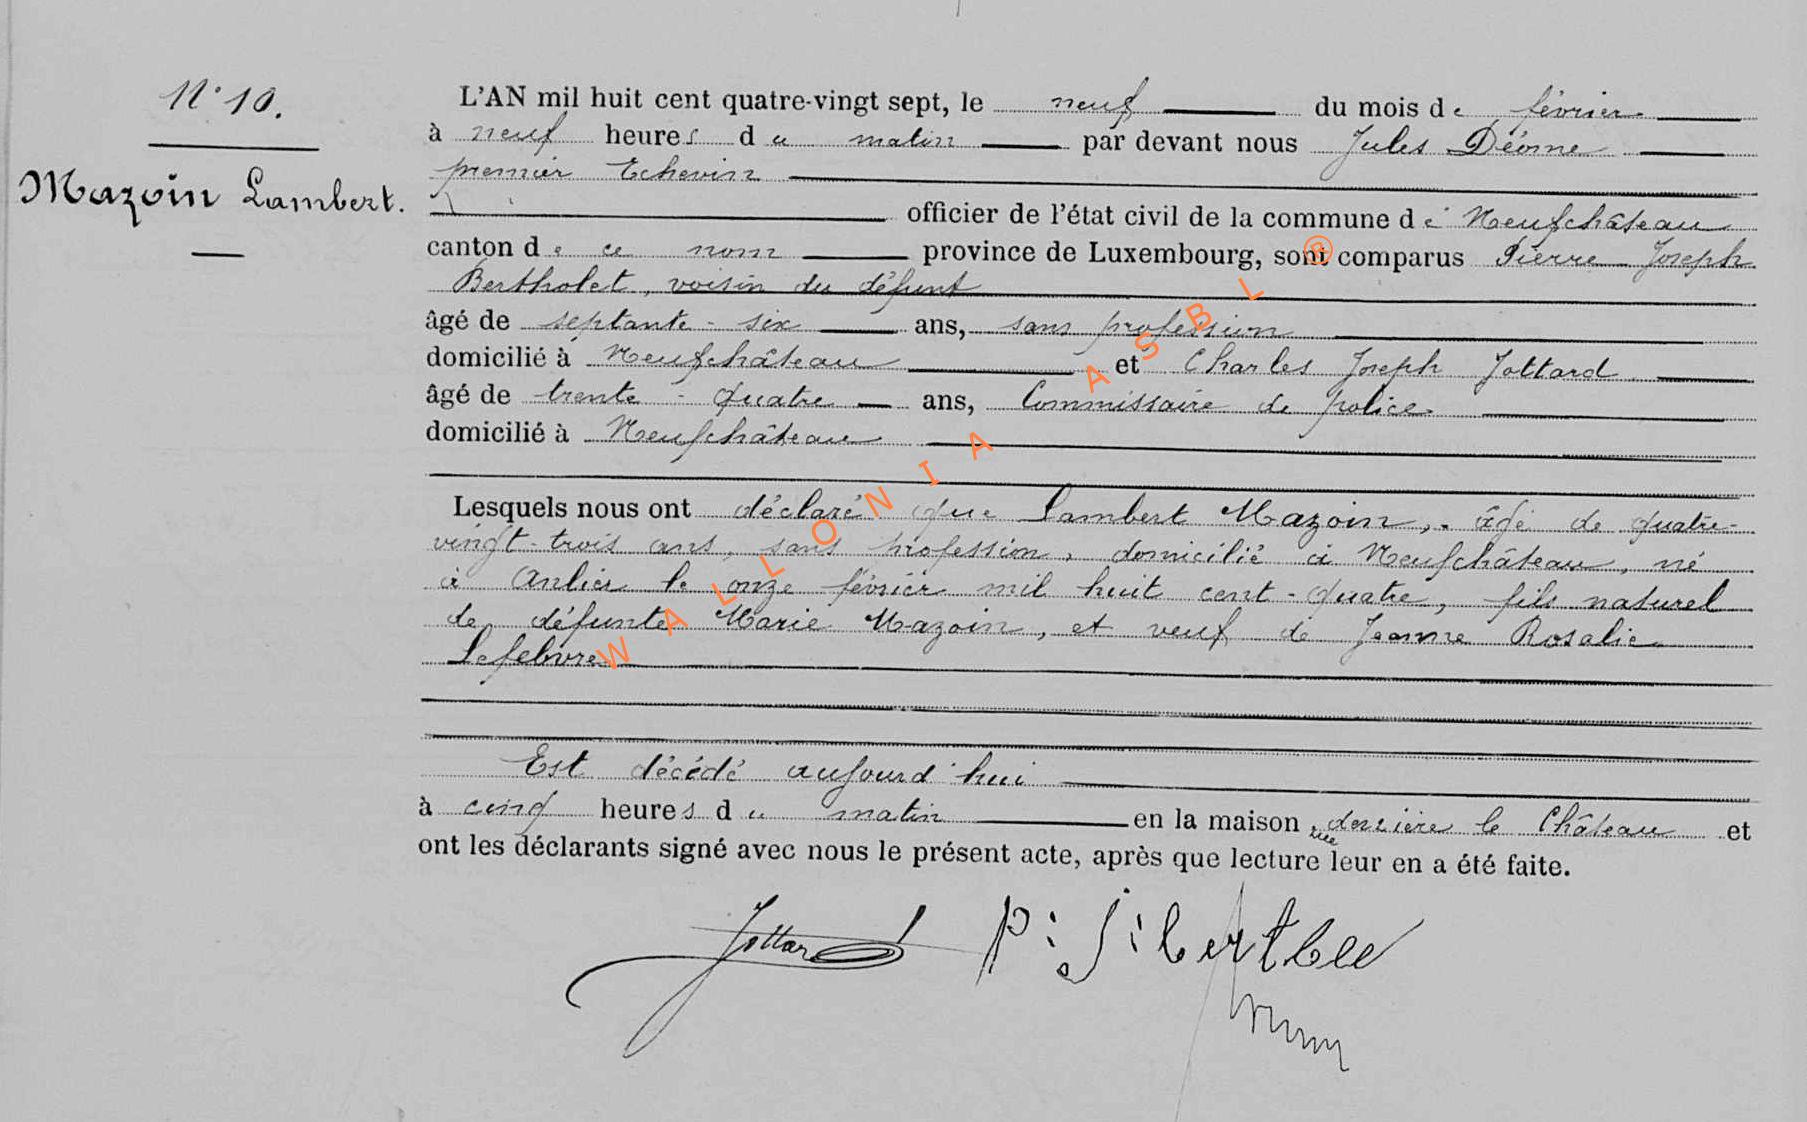 N° 10.
Mazoin Lambert.
L'AN mil huit cent quatre-vingt sept, le neuf du mois de février
à neuf heures du matin par devant nous Jules Déome
premier Echevin
officier de l'état civil de la commune de Neufchâteau
canton de ce nom province de Luxembourg, sont comparus Pierre Joseph
Bertholet, voisin du défunt
âgé de septante-six ans, sans profession
domicilié à Neufchâteau et Charles Joseph Jottard
âgé de trente-quatre ans, Commissaire de police
domicilié à Neufchâteau
Lesquels nous ont déclaré que Lambert Mazoin, âgé de quatre-
vingt-trois ans, sans profession, domicilié à Neufchâteau, né
à Anlier le onze février mil huit cent-quatre, fils naturel
de défunte Marie Mazoin, et veuf de Jeanne Rosalie
Lefebvre
Est décédé aujourd'hui
à cinq heures du matin en la maison rue derrière le Château et
ont les déclarants signé avec nous le présent acte, après que lecture leur en a été faite.
Jottard
WALLONIA ASBL ®